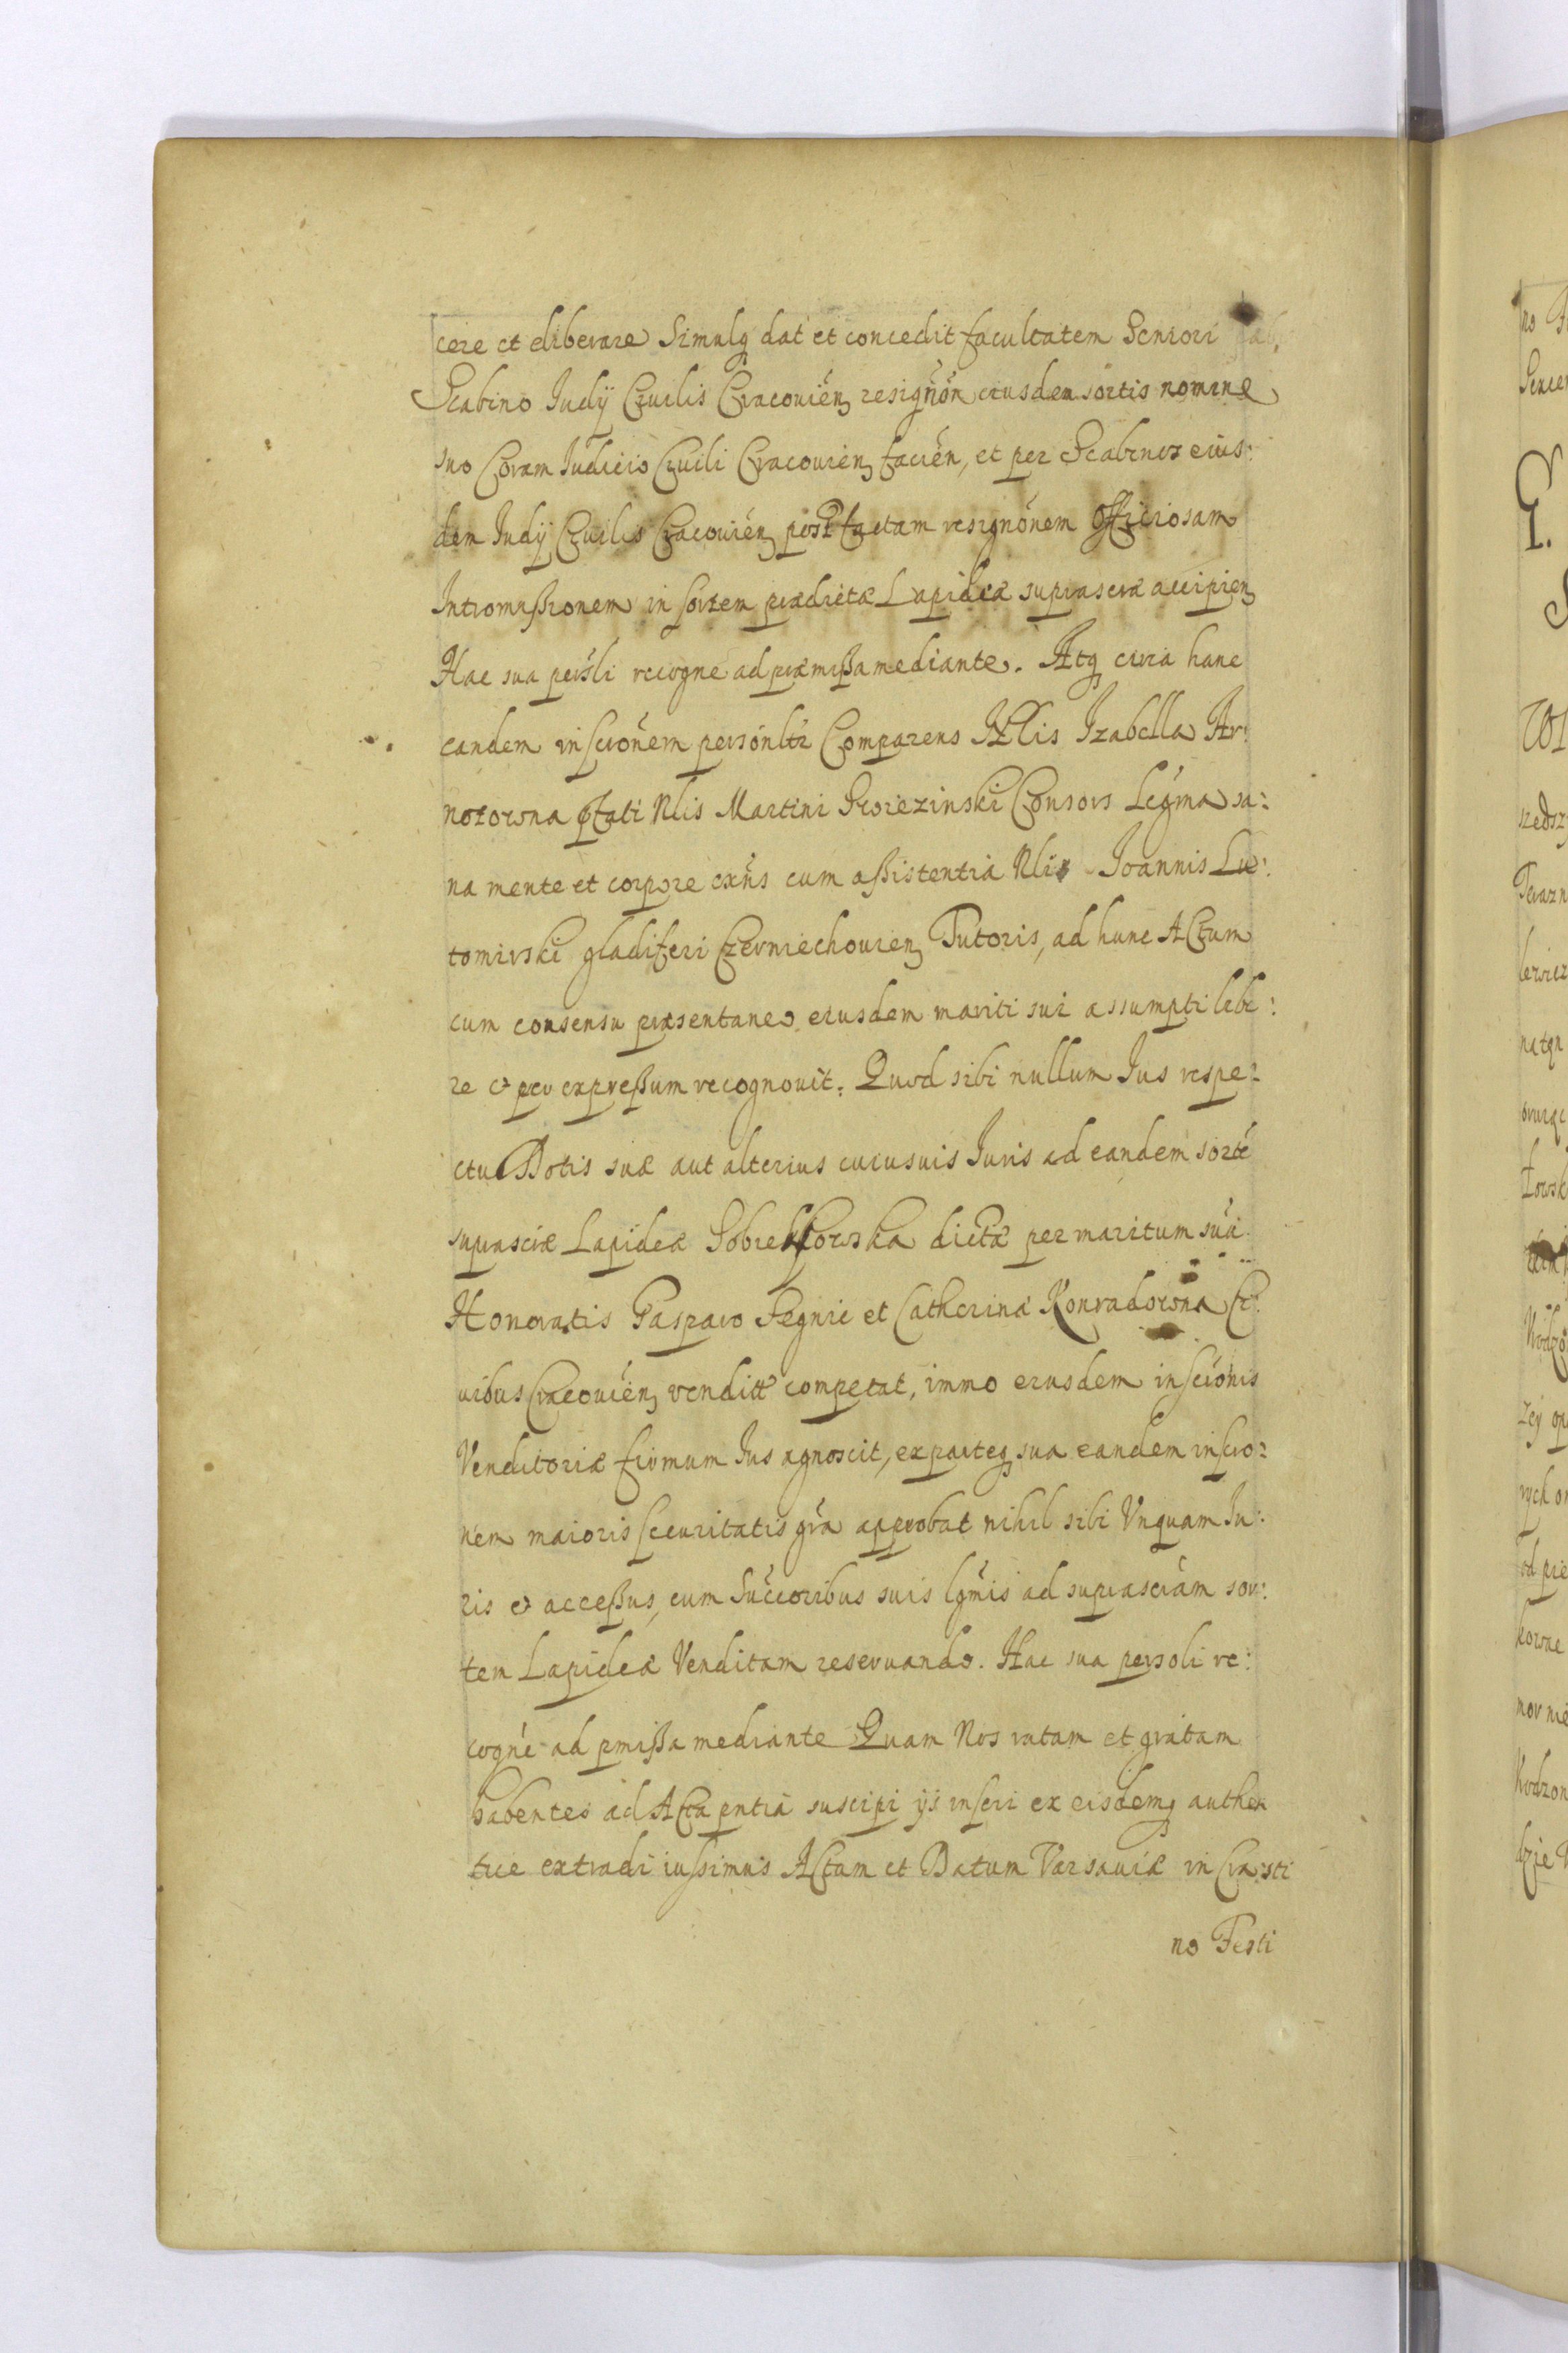 cere et eliberare Simulq dat et concedit facultatem Seniori
Scabino Judÿ Civilis Cracouien resignõn eiusdem sortis nomine
suo Coram Judicio Civili Cracouien facien, et per Scabinos eius:
dem Judÿ Civilis Cracouien post factam resignõnem Officiosam
Intromißionem in sortem prædictæ Lapideæ suprascræ accipien
Hac sua persli recogne ad præmißa mediante. Atq circa hanc
eandem inscrõnem persõnltr Comparens Izabella Ar:
notowna pfati Nlis Martini Consors Légma sa:
na mente et corpore exñs cum aßistentia Nlis Joannis Lu:
tomirski gladiferi Czerniechouien Tutoris, ad hunc Actum
cum consensu præsentaneo eiusdem mariti sui assumpti libe:
re et per expreßum recognouit. Quod sibi nullum Jus respe:
ctu Dotis suæ aut alterius cuiusuis Juris ad eandem sorté
suprascræ Lapideæ dictæ per maritum suũ
Honoratis Gasparo et Catherinæ Konradowna Ci:
uibus Cracouien vendit competat, immo eiusdem inscrõnis
Venditoriæ firmum Jus agnoscit, ex parteq sua eandem inscro:
nem maioris securitatis grã approbat nihil sibi Vnquam Ju:
ris et acceßus, cum Succoribus suis lgmis ad suprascrãm sor:
tem Lapideæ Venditam reseruando. Hac sua persoli re:
cogné ad pmißa mediante Quam Nos ratam et gratam
habentes ad Acta pntia suscipi ijs inseri ex eisdemq authen
tice extradi iussimus Actum et Datum Varsauiæ in Crasti
no Festi